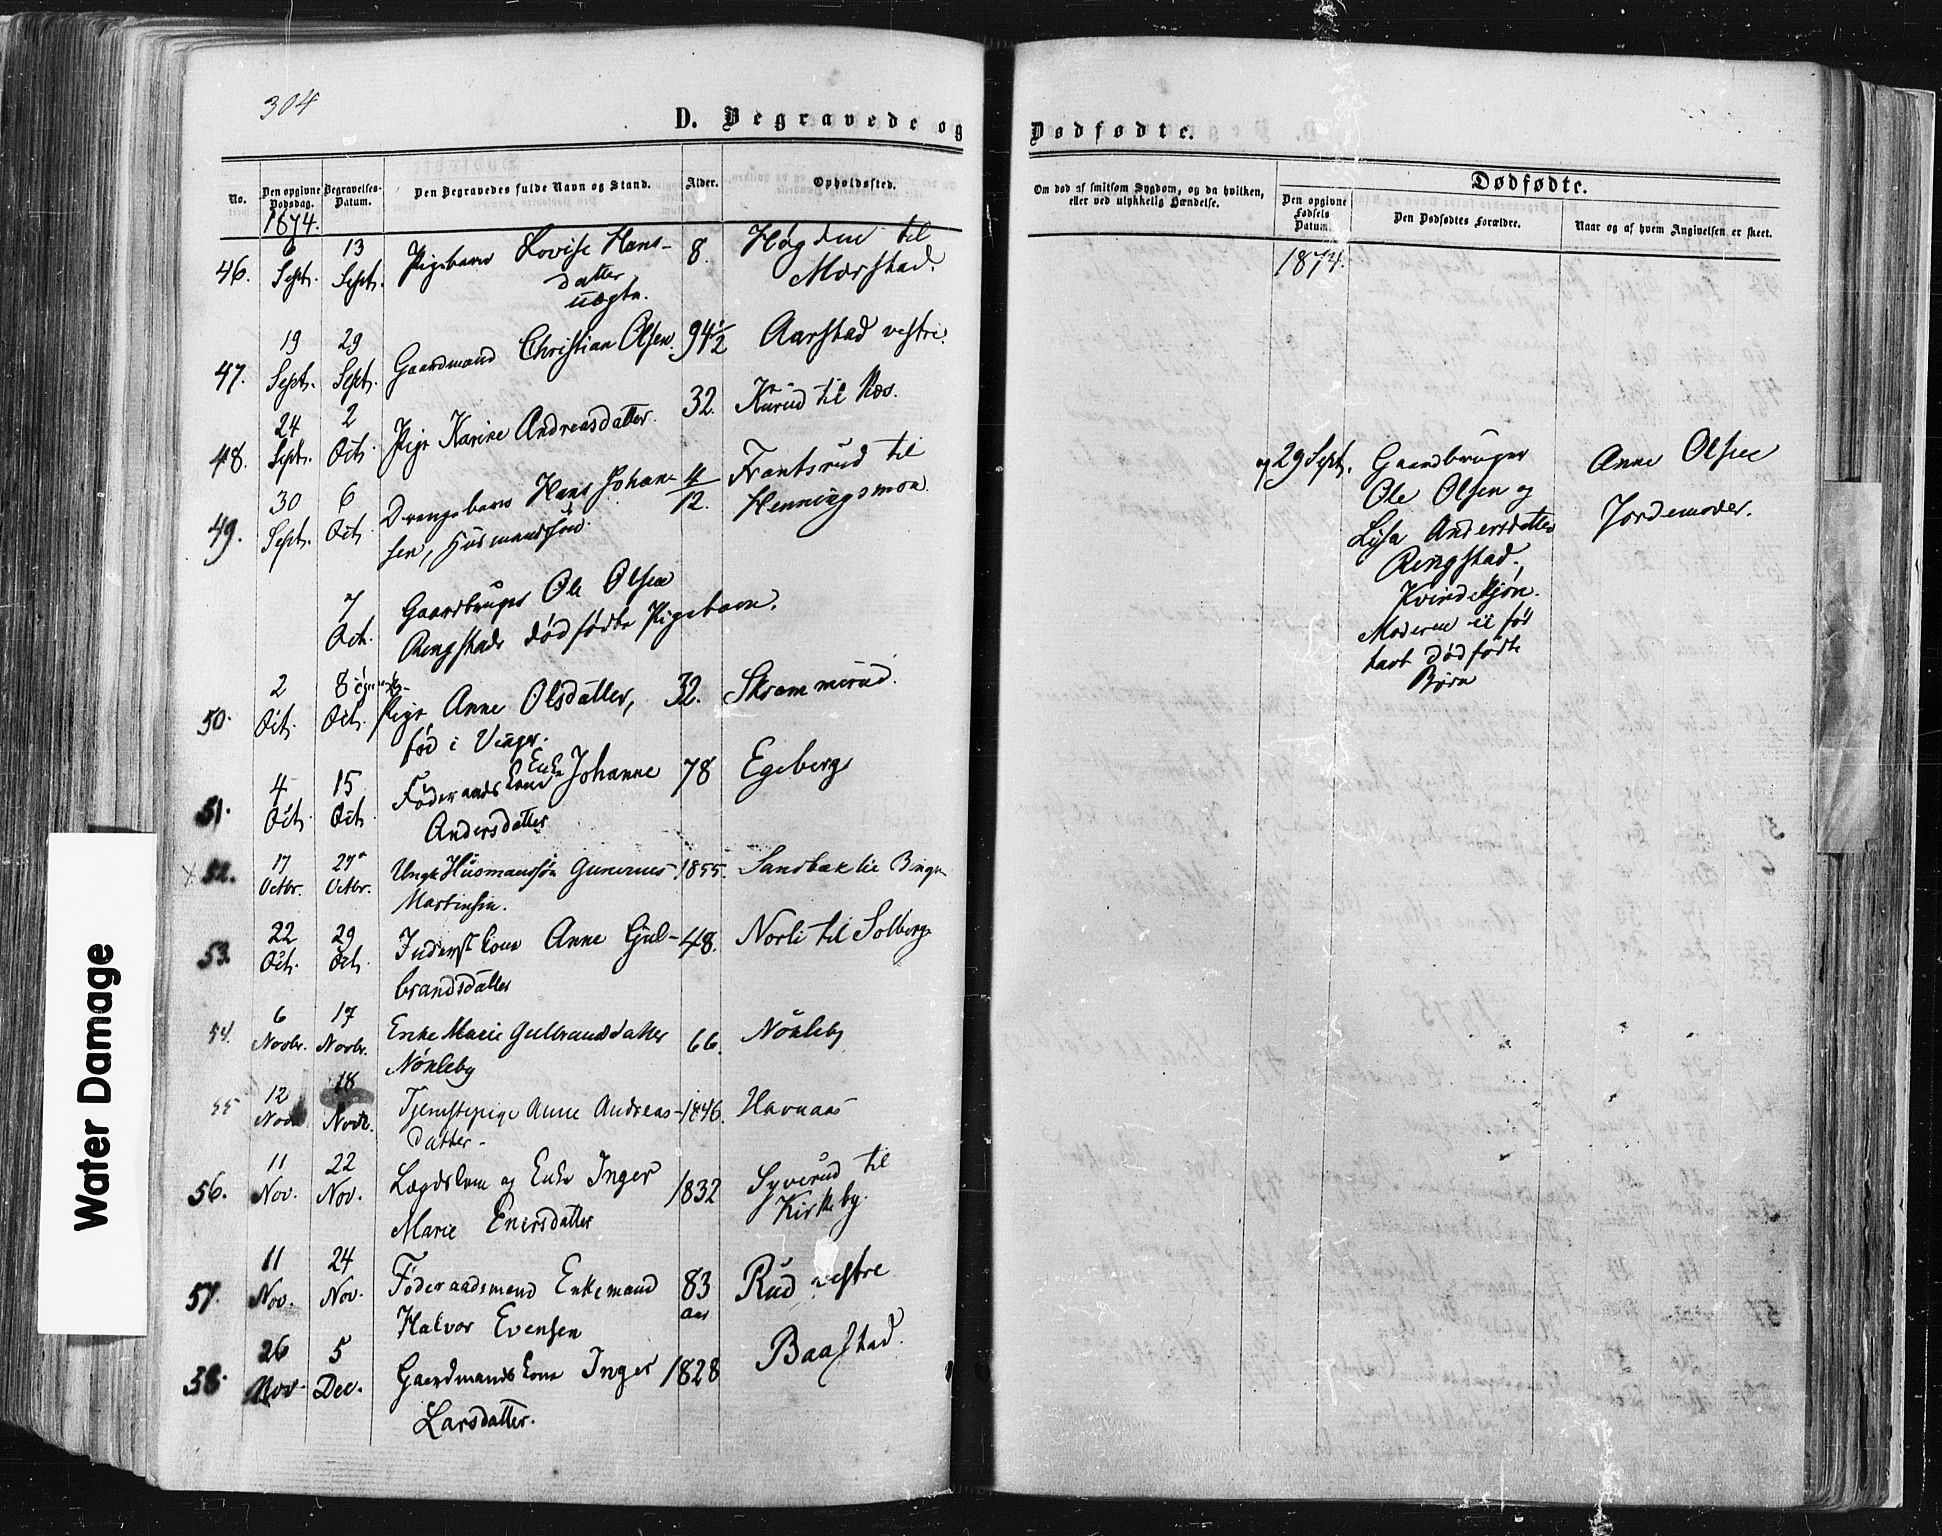 304
D. Begravede og Dødfødte.
No.
Den opgivne Dødsdag.
Begravelses-Datum.
Den Begravedes fulde Navn og Stand.
Alder.
Opholdssted.
Om død af smitsom Sygdom, og da hvilken, eller ved ulykkelig Hændelse.
Dødfødte.
Den opgivne Fødsels Datum.
Den Dødfødtes Forældre.
Naar og af hvem Angivelsen er skeet.
1874.
1874.
46. 6 Sept. 13 Sept. Pigebarn Lovise Hans-
datter
uægte.
8. Høgden til
Morstad.
47. 19 Sept. 29 Sept. Gaardmand Christian Olsen. 94 1/2 Aarstad vestre.
48. 24 Sept. 2 Oct. Pige Karine Andreasdatter. 32. Kurud til Næs.
49. 30 Sept. 6 Oct. Drengebarn Hans Johan-
sen, Husmandssøn.
4/12. Frantsrud til
Henningsmoen.
7 Oct. Gaardbruger Ole Olsen
Ringstads dødfødte Pigebarn.
29 Sept. Gaardbruger
Ole Olsen og
Lisa Andersdatter
Ringstad.
Kvindekjøn.
Moderen ei før
havt dødfødte
Børn
Anne Olsen
Jordemoder.
50. 2 Oct. 8 Oct. Pige Anne Olsdatter,
fød i Vinger.
32. Skrammerud.
51. 4 Oct. 15 Oct. Føderaads Enke Johanne
Andersdatter
78 Egeberg
52. 17 Octbr. 27 Octbr. Ungk Husmandssøn Gunerius
Martinsen.
1855. Sandbæk til Bingen
53. 22 Oct. 29 Oct. Inderstkone Anne Gul-
brandsdatter
48. Norli til Solberg
54. 6 Novbr. 17 Novbr. Enke Marie Gulbrandsdatter
Nökleby
66. Nökleby
55 12 Novb. 18 Novb. Tjenestepige Anne Andreas-
datter-
1846. Havnaas
56. 11 Nov. 22 Nov. Lægdslem og Enke Inger
Marie Enersdatter
1832 Syverud til
Kirkeby.
57. 11 Nov. 24 Nov. Føderaadsmand Enkemand
Halvor Evensen
83
aar
Rud vestre
58. 26 Nov. 5 Dec. Gaardmandskone Inger
Larsdatter.
1828 Baastad.
Water Damage